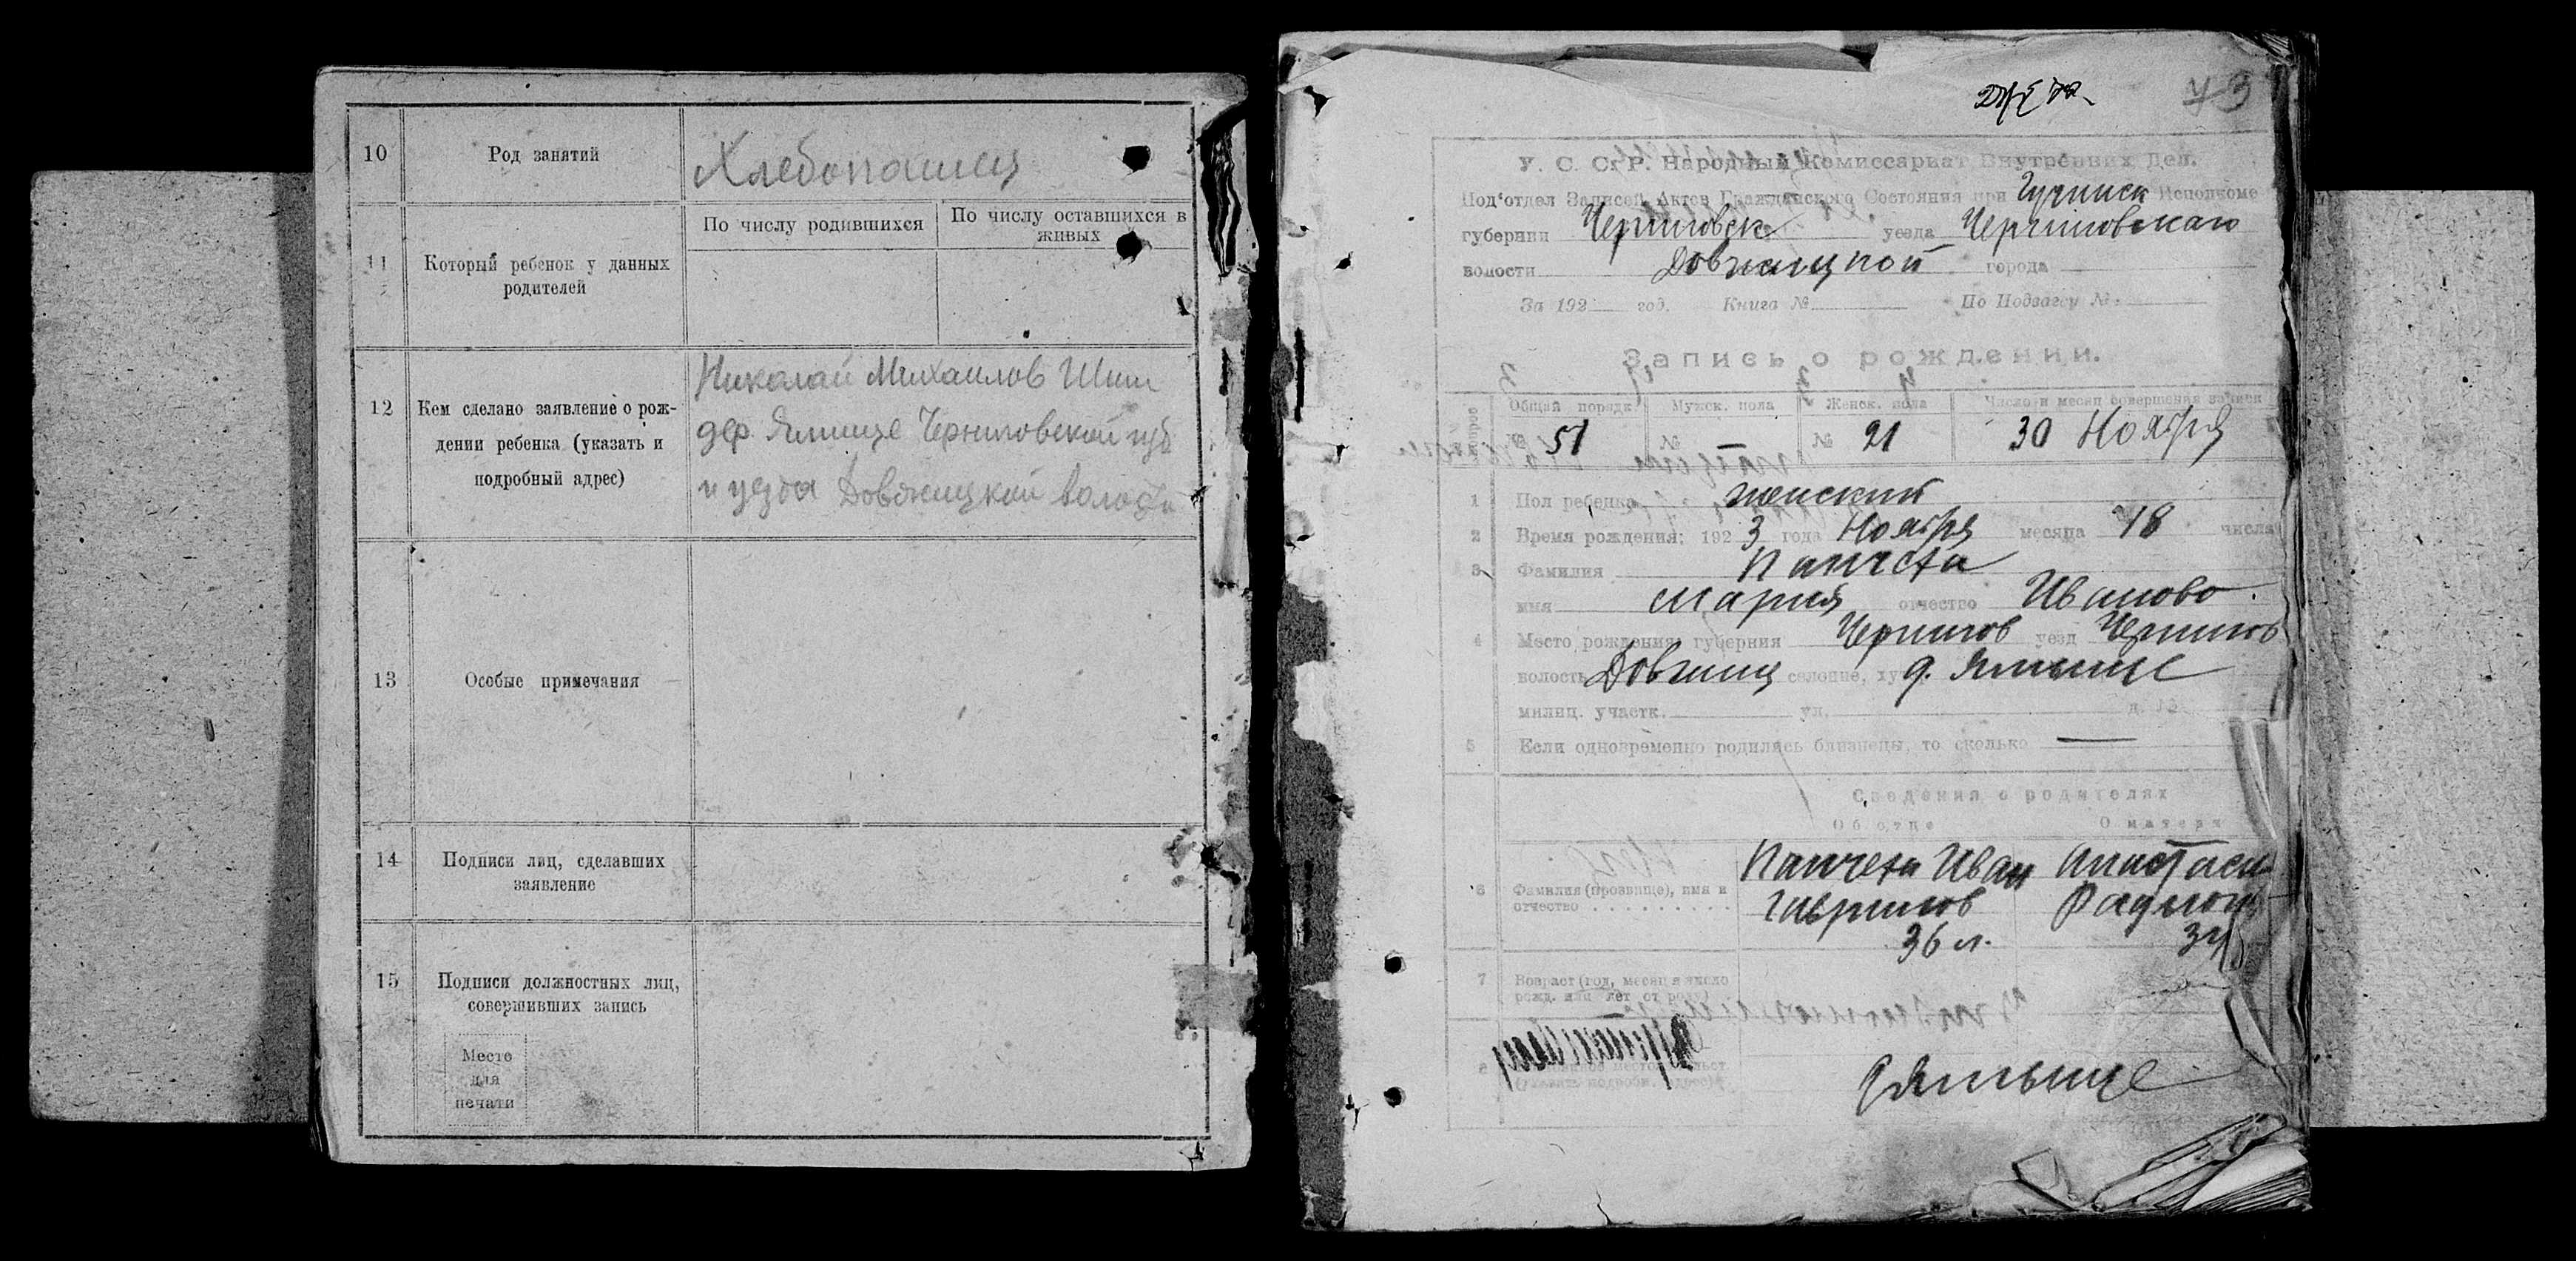 10 Род занятий Хлебопашец
11 Который ребенок у данных родителей
По числу родившихся
По числу оставшихся в живых
12 Кем сделано заявление о рож-
дении ребенка (указать и
подробный адрес)
Николай Михаилов
дер. Ямище Черниговской губ
и уезда Довжицкой волости
13 Особые примечания
14 Подписи лиц, сделавших
заявление
15 Подписи должностных лиц,
совершивших запись
Место
для
печати
73
У. С. С. Р. Народный Комиссариат Внутренних Дел.
Под'отдел Записей Актов Гражданского Состояния при Исполкоме
губернии Черниговск уезда Черниговскаго
волости Довжицкой города
За 192 год. Книга № По Подзагсу №
Запись о рождении.
Общий порядк. Мужск. пола Женск. пола Число и месяц совершения записи
№ 51 № — № 21 30 Ноября
1 Пол ребенка женский
2 Время рождения: 192 3 года Ноября месяца 18 числа
3 Фамилия
имя Мария отчество Иваново
4 Место рождения: губерния Чернигов уезд Чернигов
волость Довжиц селение, д. Ямище
милиц. участк. ул. д. №
5 Если одновременно родились близнецы, то сколько —
Сведения о родителях
Об отце О матери
6 Фамилия (прозвище), имя и
отчество
Иван
Гаврилов
36 л.
7 Возраст (год, месяц и число
рожд. или лет от роду)